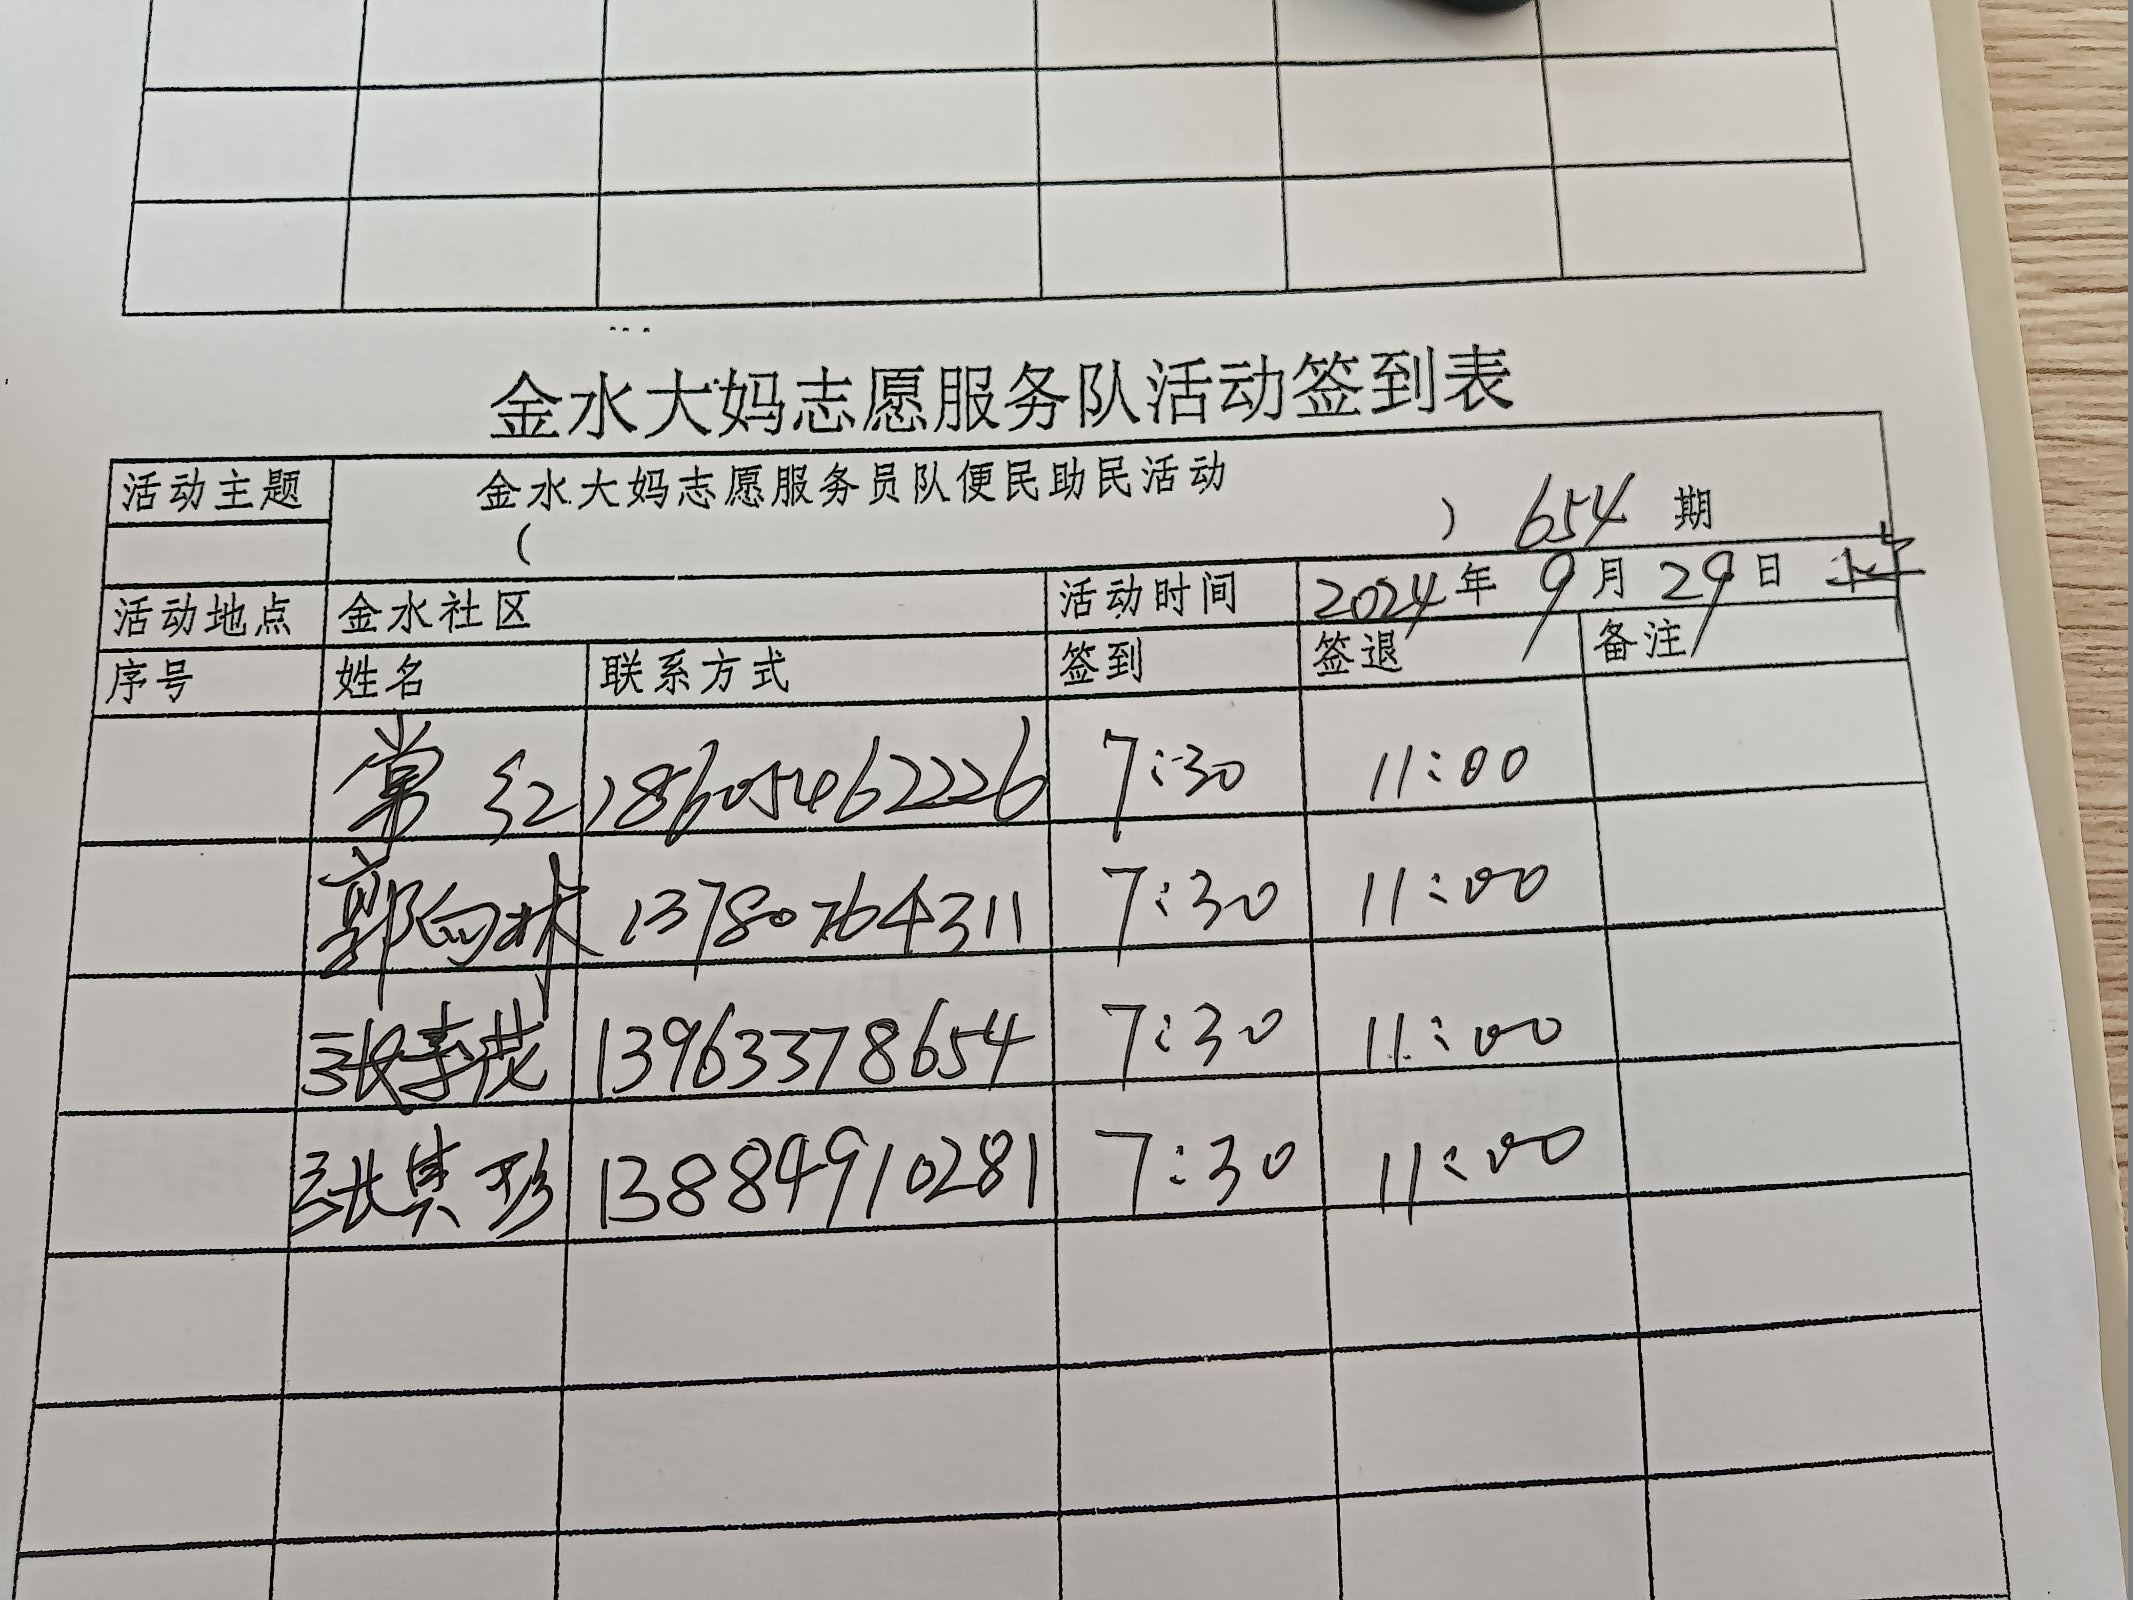 金水大妈志愿服务队活动签到表
活动主题 金水大妈志愿服务员队便民助民活动
( ) 654 期
活动地点 金水社区 活动时间 2024年 9月 29日
序号 姓名 联系方式 签到 签退 备注
常红 18605462226 7:30 11:00
郭向林 13780764311 7:30 11:00
张李茂 13963378654 7:30 11:00
张其彩 13884910281 7:30 11:00